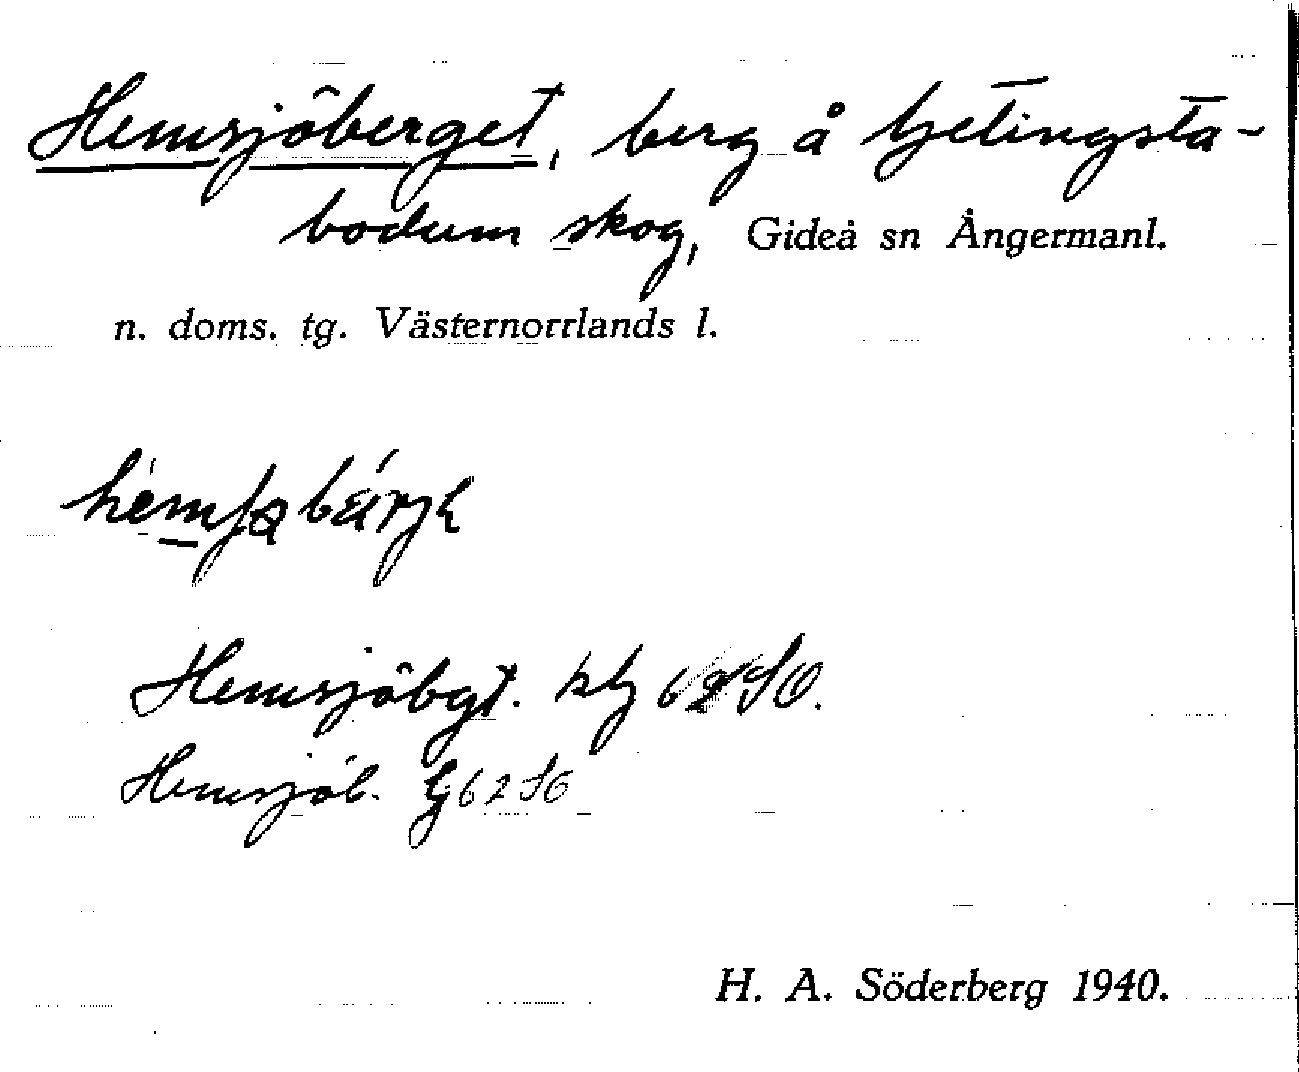 Hemsjöberget, berg å Gjetingsta-
bodum skog, Gideå sn Ångermanl.
n. doms. tg. Västernorrlands l.
Hemsjöbgt. 62 SO.
Hemsjöb. G 62 SO
H. A. Söderberg 1940.